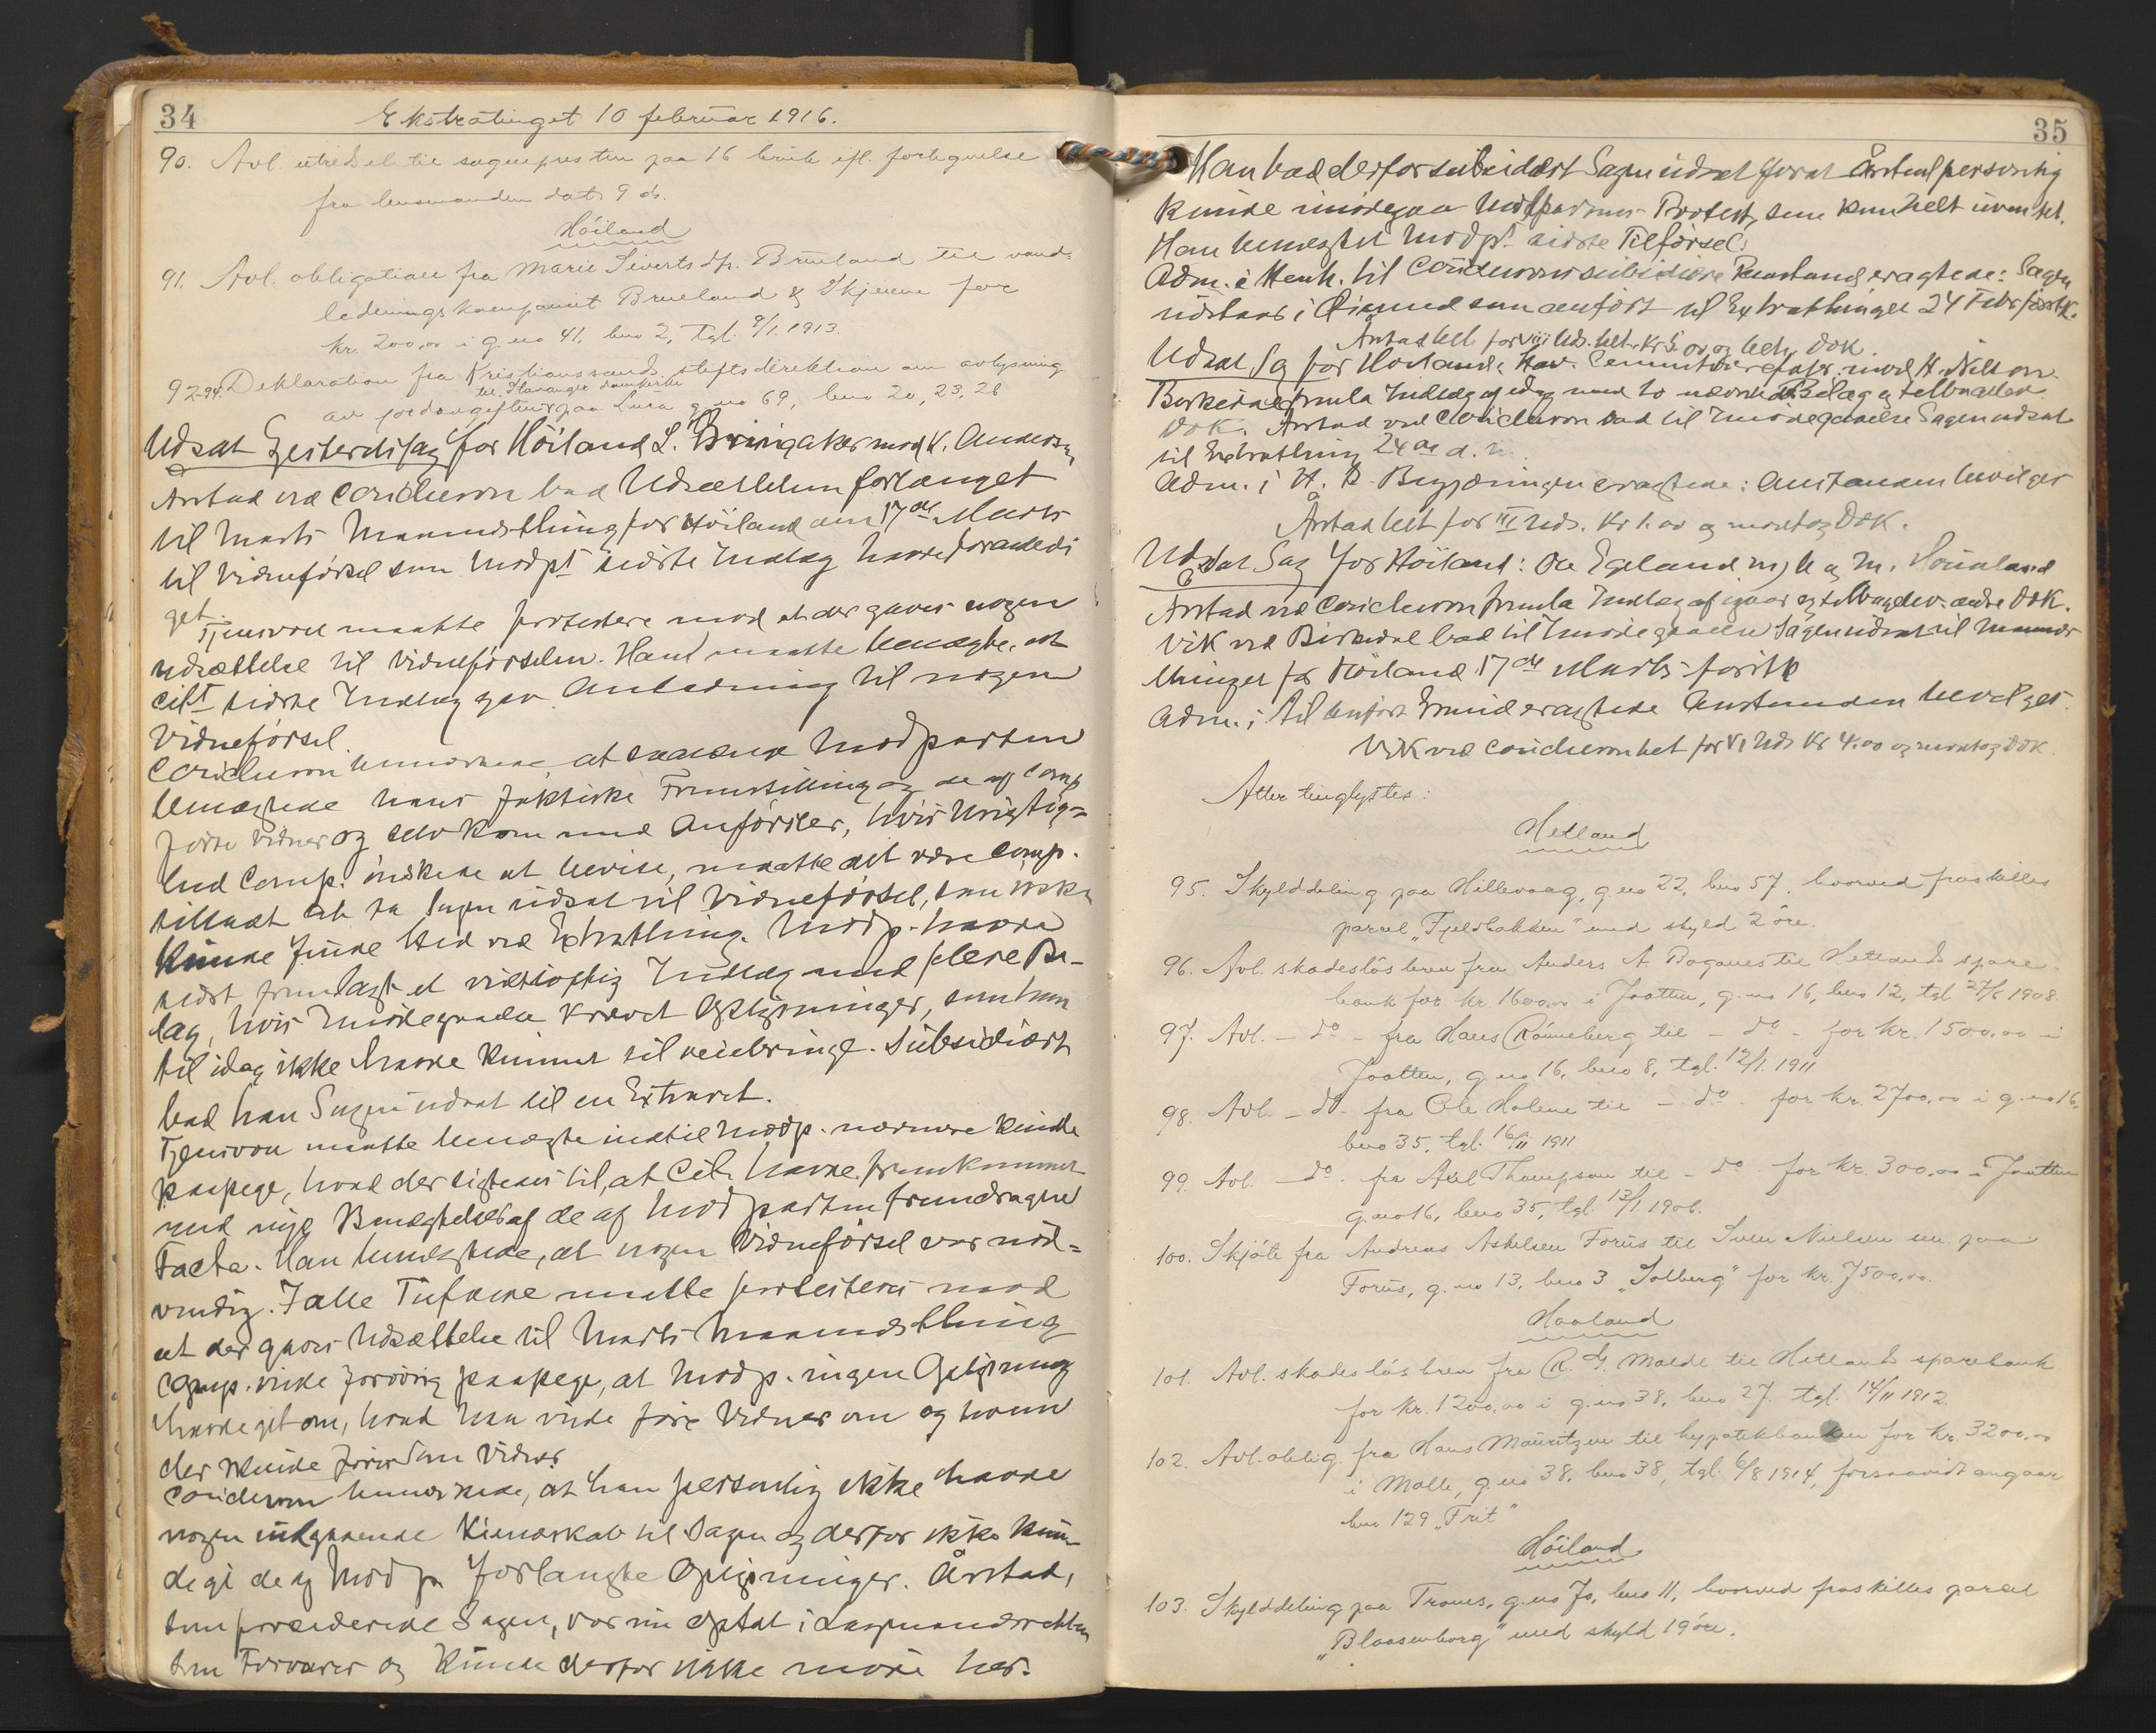 34
Ekstratinget 10 februar 1916.
90. Avl. utredsel til sognepresten paa 16 bruk ifl. fortegnelse
fra lensmanden dat. 9 ds.
Höiland
91. Avl. obligation fra Marie Sivertsdtr. Brueland til vand-
ledningskompaniet Brueland & Skjæve for
kr. 200,00 i g.no 41, bno 2, tgl. 9/1 1913.
92-94. Deklaration fra Kristianssands stiftsdirektion om avlysning
til Stavanger domkirke
av jordavgiften paa Lura g.no 69, bno 20, 23, 28
Udsat Gjesteretssag for Höiland L. Bringaker mod K. Andersen
Årstad ved Coucheron bad Udsættelsen forlænget
til Marts Maanedsthing for Höiland den 17de Marts
til Vidneförsel som Modpts sidste Indlæg havde foranledi
get.
Tjensvoll maatte protestere mod at der gaves nogen
Udsættelse til Vidneförselen. Han maatte benægte, at
Citts sidste Indlæg gav Anledning til nogen
Vidneförsel.
Coucheron bemærkede at saalænge Modparten
benægtede hans faktiske Fremstilling og de af Comp
förte Vidner og selv kom med Anförsler, hvis Urigtig-
hed Comp. önskede at bevise, maatte det være Comp.
tilladt at faa Sagen udsat til Vidneförsel, som ikke
kunde finde Sted ved Extrathing. Modp. havde
sidst fremlagt et vidtlöftig Indlæg med flere Bi-
lag, hvis Imödegaaelse krævet Oplysninger, som han
til idag ikke havde kunnet tilveiebringe. Subsidiært
bad han Sagen udsat til en Extraret.
Tjensvoll maatte benægte indtil Modp. nærmere kunde
paapege, hvad der sigtedes til, at Citt. havde fremkommet
med nye Benægtelser af de af Modparten fremdragne
Facta. Han benægtede, at nogen Vidneförsel var nöd-
vendig. I alle Tilfælde maatte protesteres mod
at der gaves Udsættelse til Marts Maanedsthing
Comp. vilde forövrig paapege, at Modp. ingen Oplysning
havde git om, hvad han vilde före Vidner om og hvem
der kunde föres som Vidner
Coucheron bemærkede, at han personlig ikke havde
nogen indgaaende Kjendskab til Sagen og derfor ikke kun-
de gi de af Modp. forlangte Oplysninger. Årstad,
som procederede Sagen, var nu optat i Lagmandsretten
som Forsvarer og kunde derfor ikke möde her.
35
Han bad derfor subsidiært Sagen udsat forat Årstad personlig
kunde imödegaa Modpartens Protest, som kom helt uventet.
Han benægtet Modpts sidste Tilförsel.
Adm. i Henh. til Coucherons subsidiære Paastand eragtede: Sagen
udstaar i Öiemed som anfört til Extrathinget 24 Febr förstk.
Årstad bet. for VIII Uds. kr 5.00 og beh. Dok
Udsat Sag for Höiland: Hav. Cementvarefabr. mod H. Nilson.
Birkedal fremla Indlæg af idag med to nævnte Bilag og tilbagelev.
Dok. Årstad ved Coucheron bad til Imödegaaelse Sagen udsat
til Extrathing 24de d. m.
Adm. i H. t. Begjæringen eragtede: Anstanden bevilges
Årstad bet for III Uds. Kr 1.00 og modtog Dok.
Udsat Sag for Höiland: Ole Egeland mod K og M. Hommeland
Årstad ved Coucheron fremla Indlæg af igaar og tilbagelev. andre Dok.
Vik ved Birkedal bad til Imödegaaelse Sagen udsat til Maaneds
thinget for Höiland 17de Marts förstk
Adm. i til anfört Öiemed eragtede Anstanden bevilget.
Vik ved Coucheron bet for VI Uds Kr 4.00 og modtog Dok.
Atter tinglystes:
Hetland
95. Skylddeling paa Hillevaag, g.no 22, bno 57, hvorved fraskilles
parcel "Fjeldbakken" med skyld 2 öre.
96. Avl. skadeslösbrev fra Anders A. Boganes til Hetlands spare-
bank for kr. 1600,00 i Jaatten, g.no 16, bno 12, tgl 27/6 1908.
97. Avl. - do - fra Hans Rönneberg til - do - for kr. 1500,00 i
Jaatten, g.no 16, bno 8, tgl. 12/1. 1911
98. Avl. - do - fra Ole Holene til - do - for kr. 2700,00 i g.no 16,
bno 35, tgl. 16/11 1911
99. Avl. - do - fra Axel Thompson til - do - for kr. 300,00 i Jaatten
g.no 16, bno 35, tgl. 13/1 1906.
100. Skjöte fra Andreas Askelsen Forus til Sven Nielsen sm. paa
Forus, g.no 13, bno 3 "Solberg" for kr. 7500,00.
Haaland
101. Avl. skadeslösbrev fra R. G. Malde til Hetlands sparebank
for kr. 1200,00 i g.no 38, bno 27, tgl. 14/11 1912.
102. Avl. oblig. fra Hans Mauritzen til hypotekbanken for kr. 3200,00
i Malle, g.no 38, bno 38, tgl. 6/8 1914, forsaavidt angaar
bno 129 "Frit"
Höiland
103. Skylddeling paa Trones, g.no 70, bno 11, hvorved fraskilles parcel
"Blaasenborg" med skyld 19 öre.